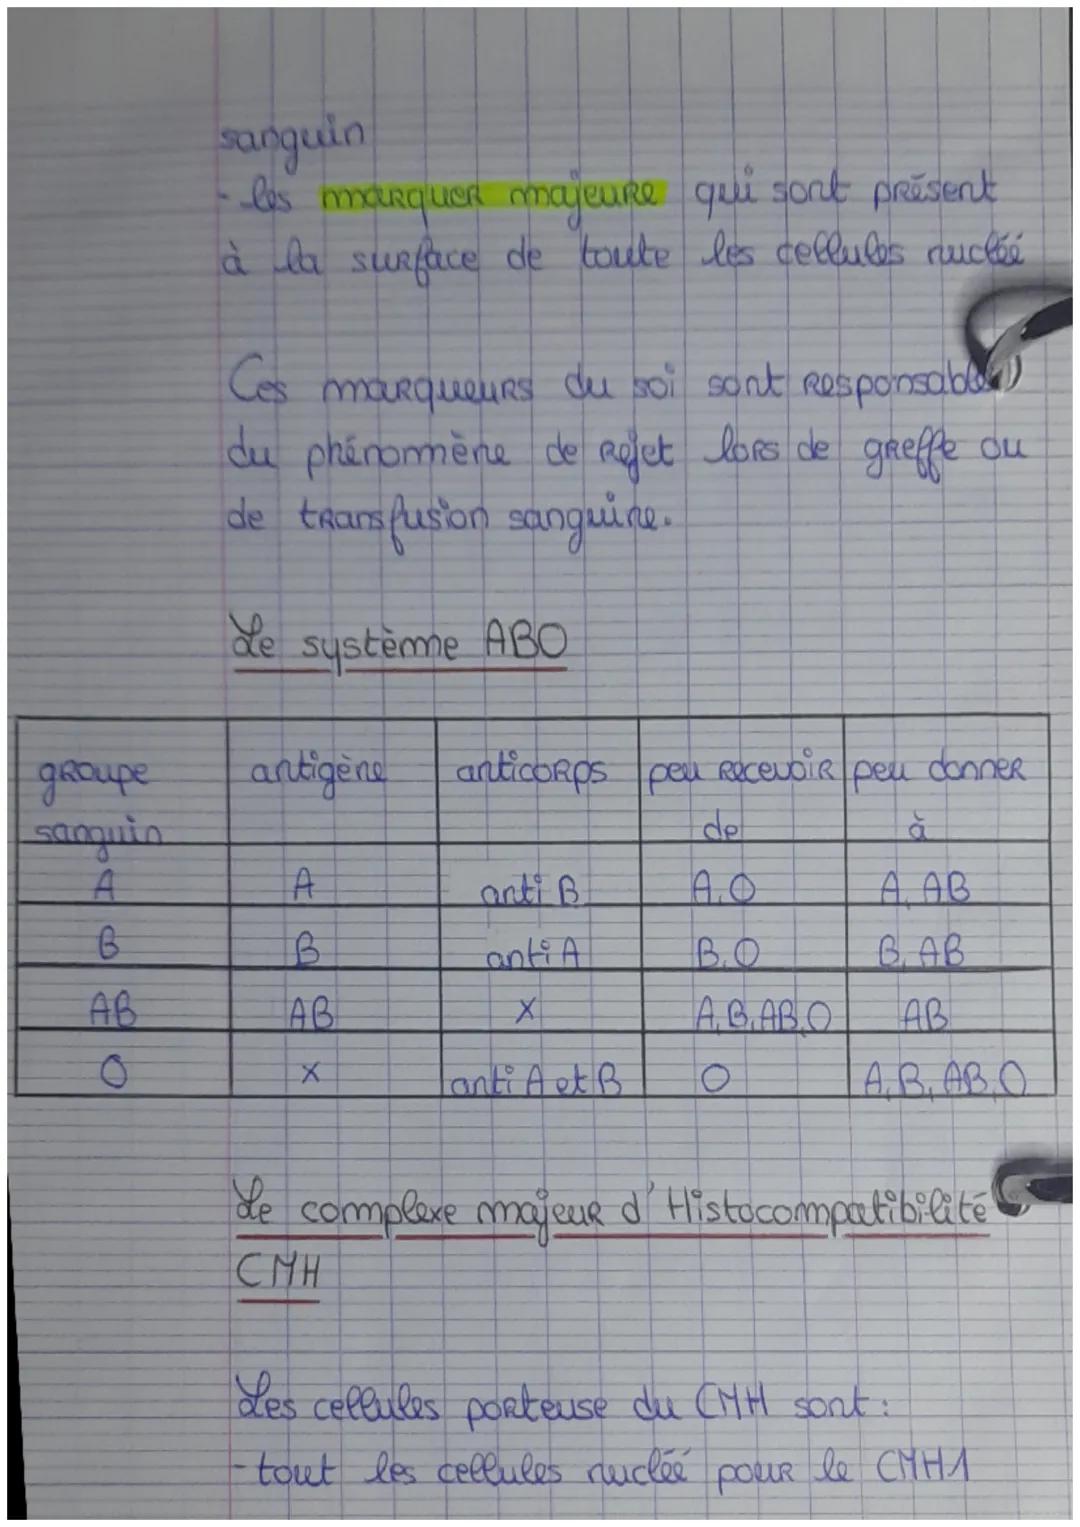 sanguin
- les marquer majeure qui sont présent
à la surface de toute les cellules nucléé
Ces marqueurs du soi sont responsable
du phénomène de rejet lors de greffe ou
de transfusion sanguine.
Le système ABO
groupe sanguin | antigène | anticorps | peu recevoir de | peu donner à
A | A | anti B | A, O | A, AB
B | B | anti A | B, O | B, AB
AB | AB | X | A, B, AB, O | AB
O | X | anti A et B | O | A, B, AB, O
Le complexe majeur d'Histocompatibilité
CMH
Les cellules porteuse du CMH sont :
- tout les cellules nucléé pour le CMH1